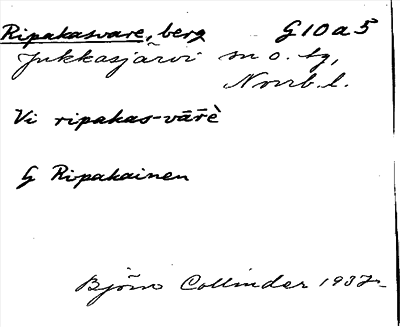 Ripakasvare, berg G10a5
Jukkasjärvi sn o. tg,
Norrb. l.
Vi ripakas-vārè
G Ripakainen
Björn Collinder 1937